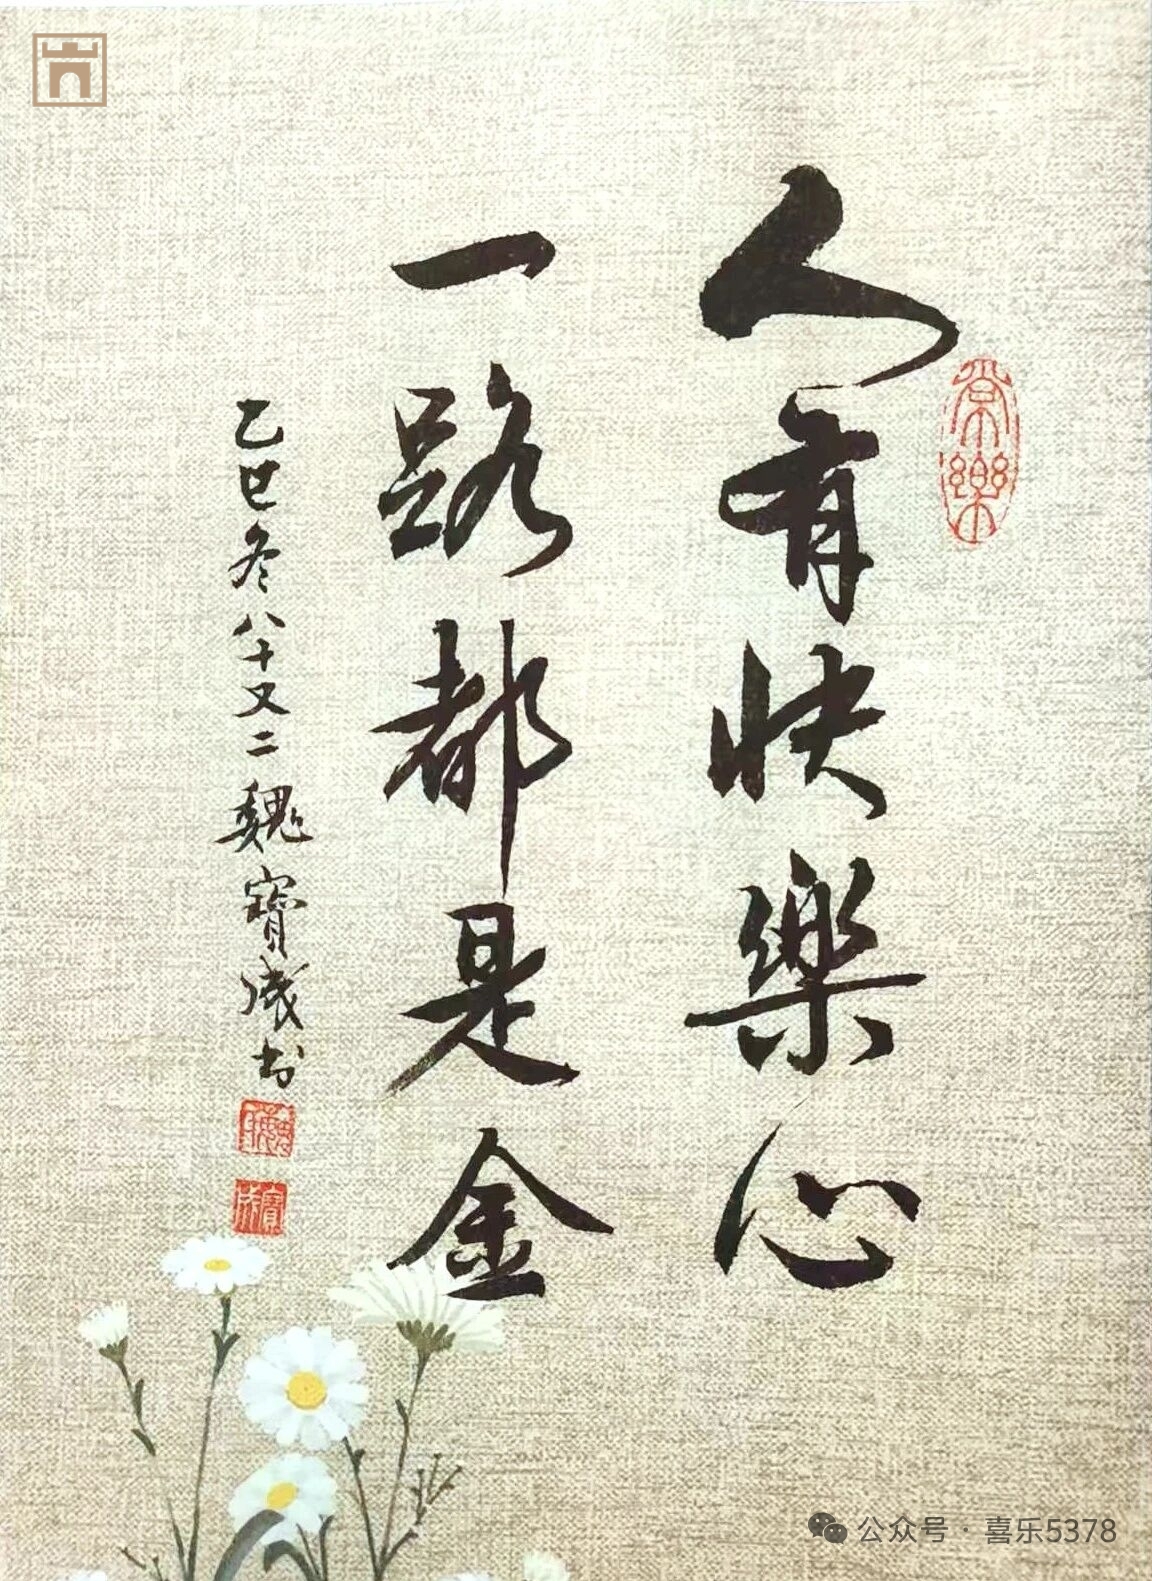 人有快樂心
常樂
一路都是金
乙巳冬八十又二魏寶成书
魏
寶成
公众号·喜乐5378